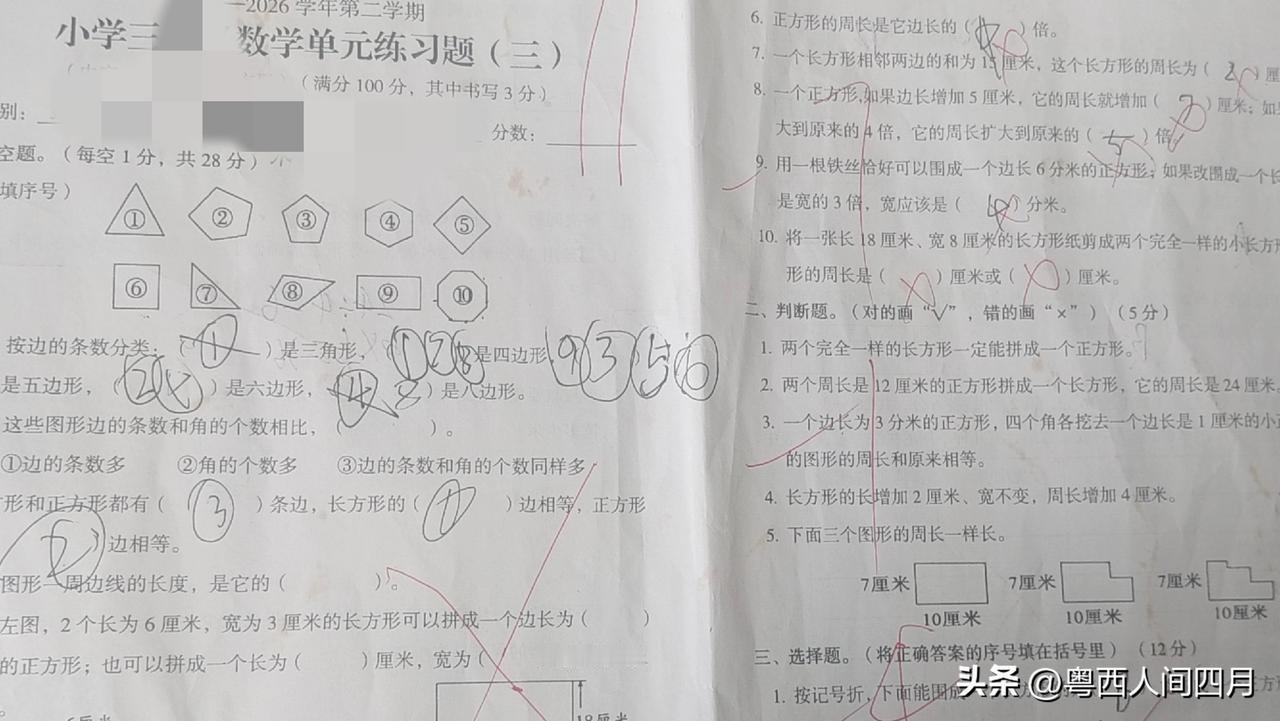 —2026 学年第二学期
小学三
数学单元练习题（三）
（满分 100 分，其中书写 3 分）
别：
分数：
空题。（每空 1 分，共 28 分）
填序号）
① ② ③ ④ ⑤
⑥ ⑦ ⑧ ⑨ ⑩
按边的条数分类：（ ① ）是三角形，是四边形，9 3 5 6
是五边形，（ ）是六边形，（ ）是八边形。
这些图形边的条数和角的个数相比，（ ）。
①边的条数多 ②角的个数多 ③边的条数和角的个数同样多
形和正方形都有（ 3 ）条边，长方形的（ ）边相等，正方形
边相等。
图形一周边线的长度，是它的（ ）。
左图，2 个长为 6 厘米，宽为 3 厘米的长方形可以拼成一个边长为（ ）
的正方形；也可以拼成一个长为（ ）厘米，宽为（
18厘米
6. 正方形的周长是它边长的（ ）倍。
7. 一个长方形相邻两边的和为 15 厘米，这个长方形的周长为（ 2 ）厘
8. 一个正方形，如果边长增加 5 厘米，它的周长就增加（ ）厘米；如
大到原来的 4 倍，它的周长扩大到原来的（ ）倍
9. 用一根铁丝恰好可以围成一个边长 6 分米的正方形；如果改围成一个长
是宽的 3 倍，宽应该是（ ）分米。
10. 将一张长 18 厘米、宽 8 厘米的长方形纸剪成两个完全一样的小长方
形的周长是（ ）厘米或（ ）厘米。
二、判断题。（对的画“√”，错的画“×”）（5 分）
1. 两个完全一样的长方形一定能拼成一个正方形。
2. 两个周长是 12 厘米的正方形拼成一个长方形，它的周长是 24 厘米。
3. 一个边长为 3 分米的正方形，四个角各挖去一个边长是 1 厘米的小
的图形的周长和原来相等。
4. 长方形的长增加 2 厘米、宽不变，周长增加 4 厘米。
5. 下面三个图形的周长一样长。
7厘米 7厘米 7厘米
10厘米 10厘米 10厘米
三、选择题。（将正确答案的序号填在括号里）（12 分）
1. 按记号折，下面能围成
头条 @粤西人间四月